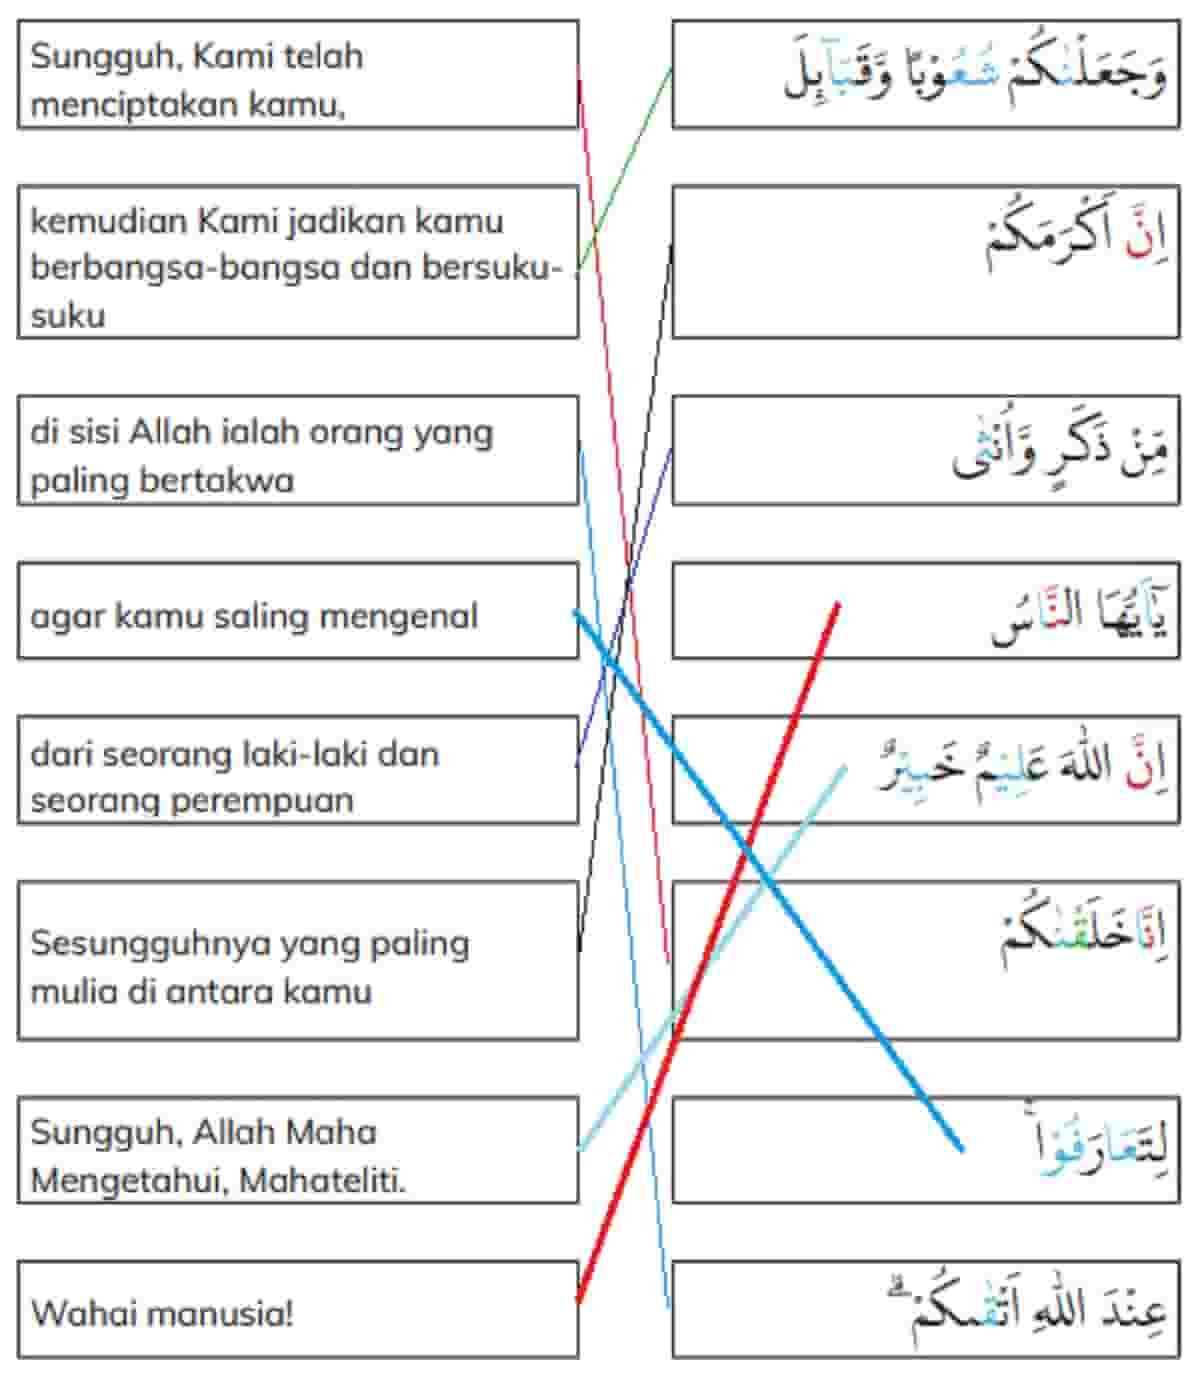 Sungguh, Kami telah
menciptakan kamu,
وَجَعَلْنٰكُمْ شُعُوْبًا وَّقَبَاۤىِٕلَ
kemudian Kami jadikan kamu
berbangsa-bangsa dan bersuku-
suku
اِنَّ اَكْرَمَكُمْ
di sisi Allah ialah orang yang
paling bertakwa
مِّنْ ذَكَرٍ وَّاُنْثٰى
agar kamu saling mengenal
يٰٓاَيُّهَا النَّاسُ
dari seorang laki-laki dan
seorang perempuan
اِنَّ اللّٰهَ عَلِيْمٌ خَبِيْرٌ
Sesungguhnya yang paling
mulia di antara kamu
اِنَّا خَلَقْنٰكُمْ
Sungguh, Allah Maha
Mengetahui, Mahateliti.
لِتَعَارَفُوْا ۚ
Wahai manusia!
عِنْدَ اللّٰهِ اَتْقٰىكُمْ ۗ